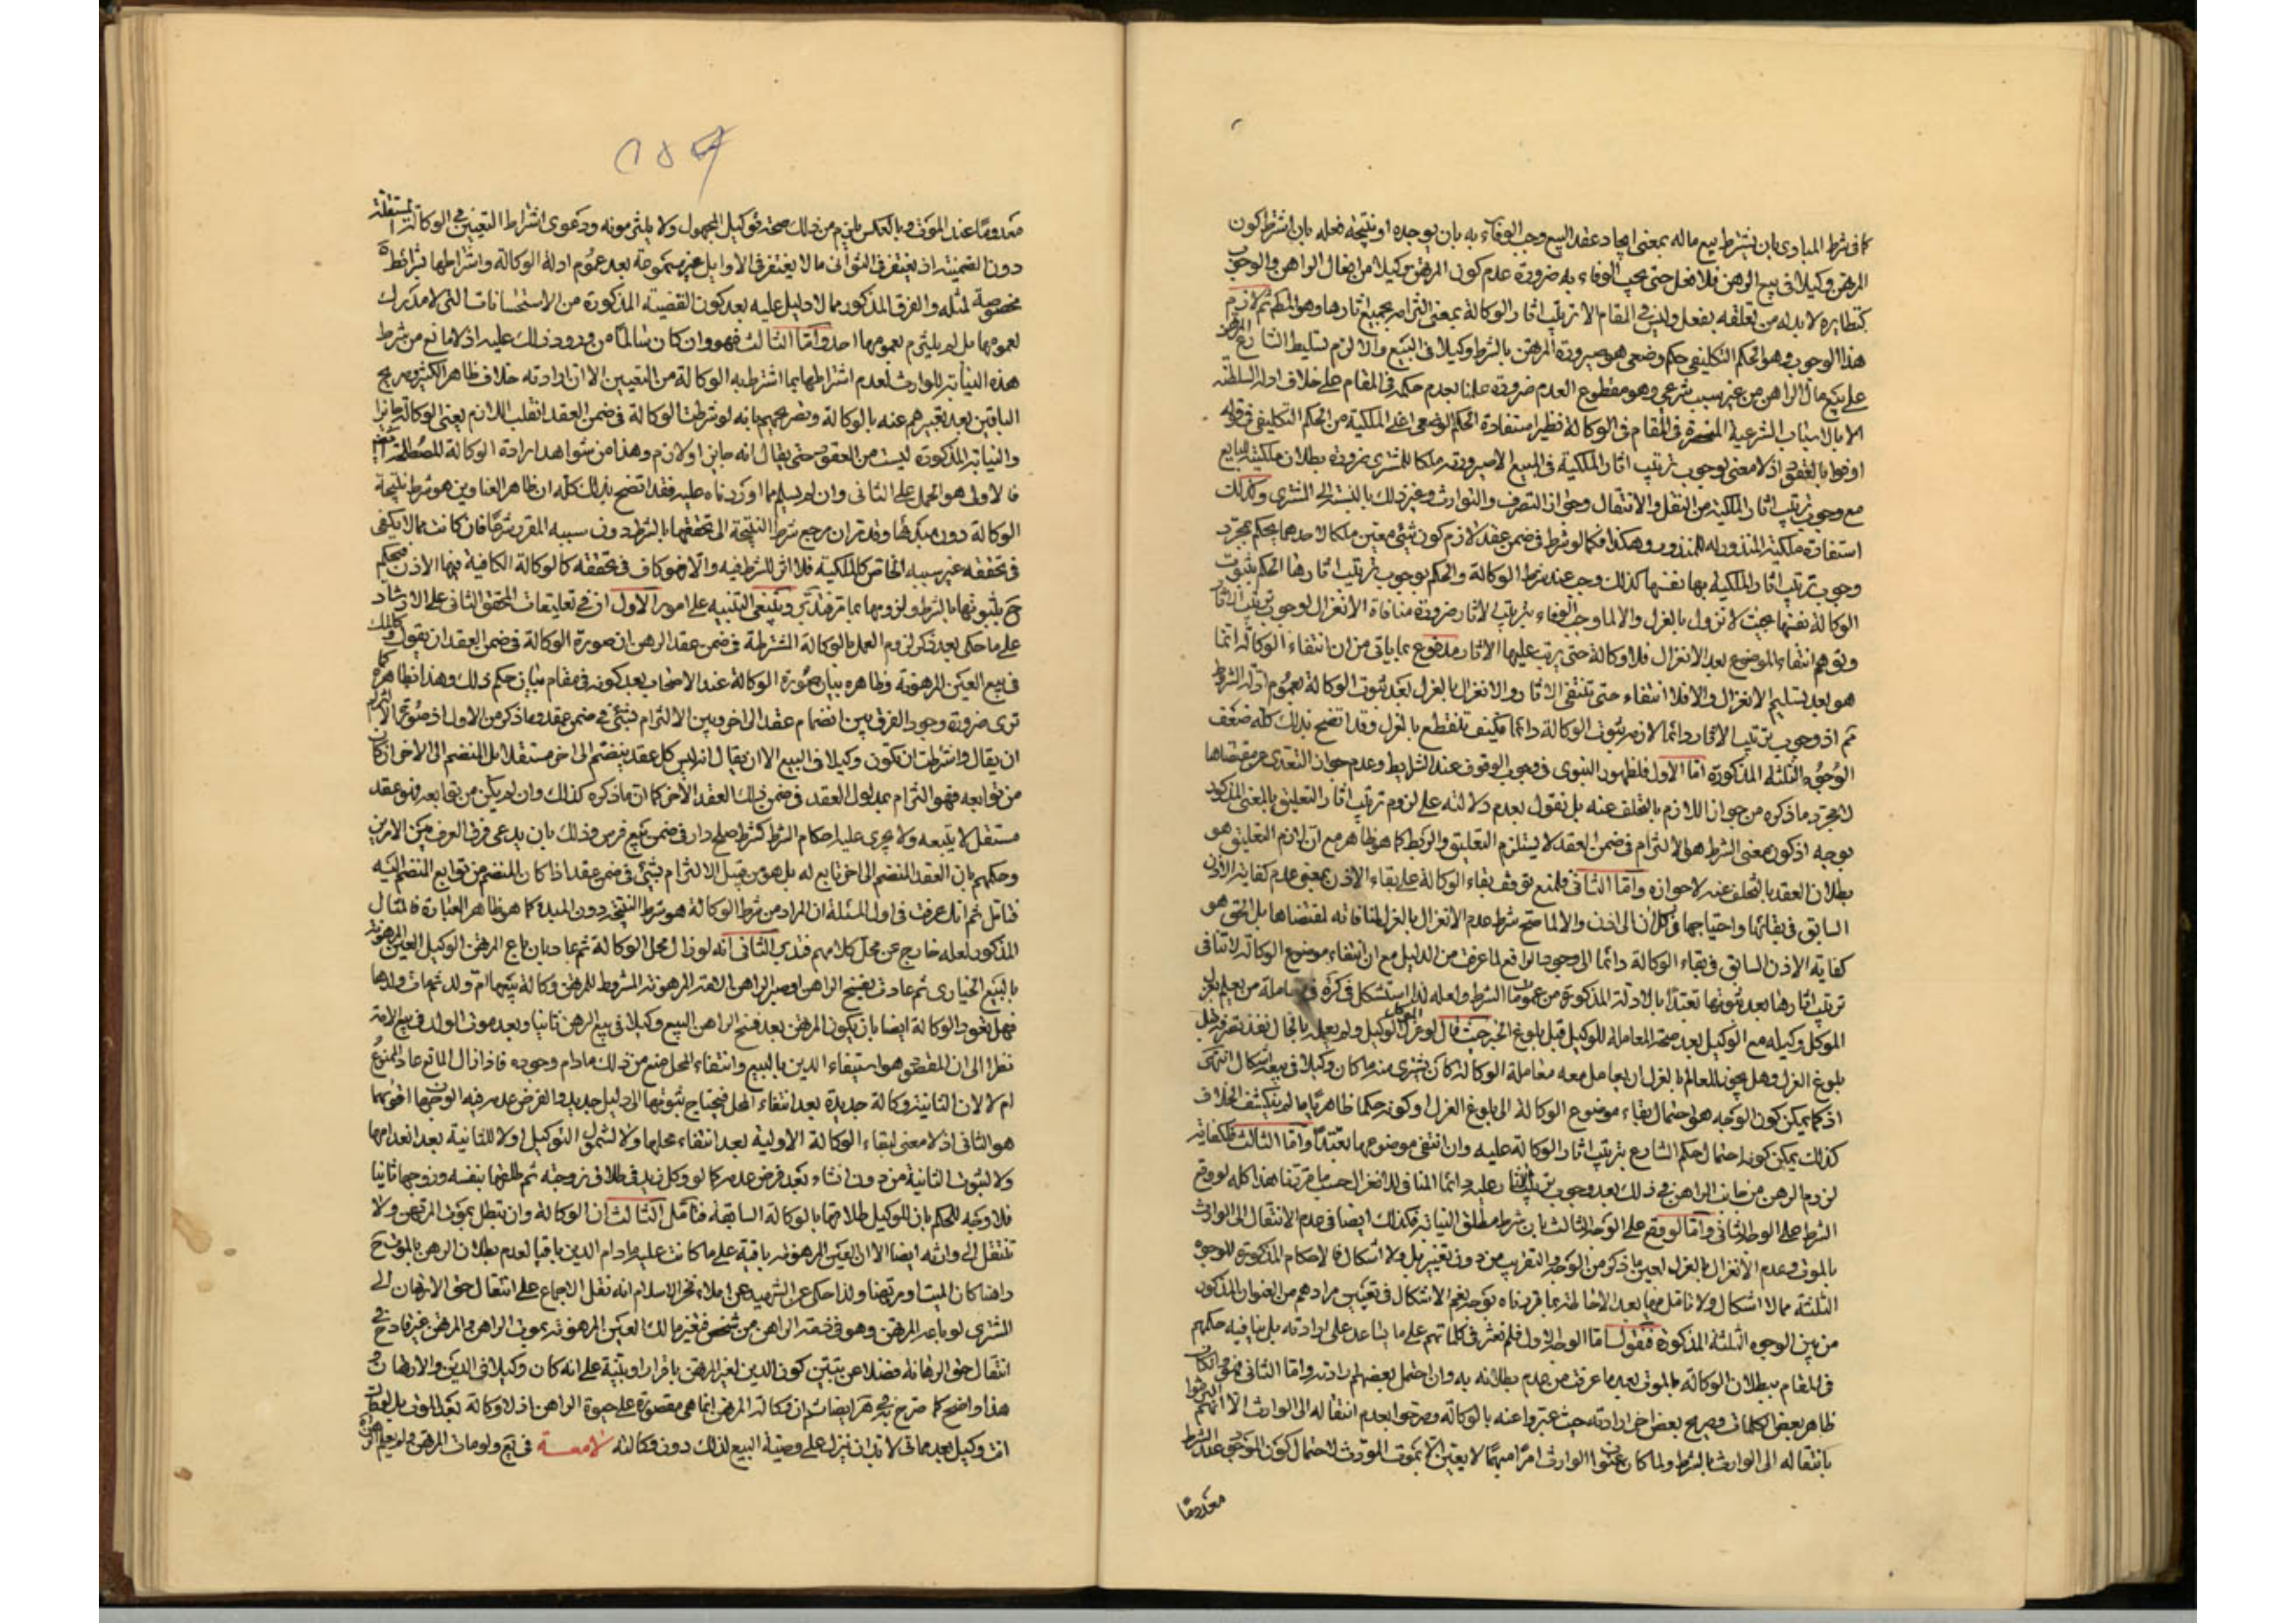 كما فى شرط المبادى بان يشترط بيع ماله بمعنى ايجاد عقد البيع وجب الوفاء به بان يوجده او نتيجة فعله بان اشترط كون
المرتهن وكيلا فى بيع الرهن فلا فعل حتى يجب الوفاء به ضرورة عدم كون المرتهن وكيلا من افعال الراهن والوجوب
كنظايره لابد له من تعلقه بفعل وليس فى المقام الا ترتيب اثار الوكالة بمعنى التزامه بجميع اثارها وهو المحكم ثم لازم
هذا الوجوب وهو الحكم التكليفى حكم وضعى هو صيرورة المرتهن بالشرط وكيلا فى البيع والا لزم تسليط الشارع المرتهن
على بيع مال الراهن من غير سبب شرعى وهو مقطوع العدم ضرورة علمنا بعدم حكمه فى المقام على خلاف ادلة السلطنة
الا بالاسباب الشرعية المنحصرة فى المقام فى الوكالة نظير استفادة الحكم الوضعى اعنى الملكية من الحكم التكليفى فى قوله
اوفوا بالعقود اذ لا معنى لوجوب ترتيب اثار الملكية فى المبيع الا صيرورته ملكا للمشترى ضرورة بطلان ملكية البايع
مع وجوب ترتيب اثار الملكية من النقل والانتقال وجواز التصرف والتوارث وغير ذلك بالنسبة الى المشترى وكذلك
استفادة ملكية المنذور له للمنذور وهكذا فكما لو شرط فى ضمن عقد لازم كون شئ معين ملكا لاحدهما يحكم بمجرد
وجوب ترتيب اثار الملكية بها نفسها كذلك وجب عند شرط الوكالة والحكم بوجوب ترتيب اثارها الحكم بثبوت
الوكالة نفسها بحيث لا تزول بالعزل والا لما وجب الوفاء بترتيب الاثار ضرورة منافاة الانعزال لوجوب ترتيب الاثار
وتوهم انتفاء الموضوع بعد الانعزال فلا وكالة حتى يرتب عليها الاثار مدفوع بما ياتى من ان انتفاء الوكالة انما
هو بعد تسليم الانعزال والا فلا انتفاء حتى تنتفى الاثار والانعزال بالعزل بعد ثبوت الوكالة بعموم ادلة الشرط
ثم اذ وجوب ترتيب الاثار دائما لازمه ثبوت الوكالة دائما فكيف تنقطع بالعزل وقد اتضح بذلك كله ضعف
الوجوه الثلثة المذكورة اما الاول فلظهور النبوى فى وجوب الوقوف عند الشرايط وعدم جواز التعدى عن مقتضاها
لا مجرد ما ذكره من جواز اللازم بالتخلف عنه بل نقول بعدم دلالته على لزوم ترتيب اثار التعليق بالمعنى المذكور
بوجه اذ كون معنى الشرط هو الالتزام فى ضمن العقد لا يستلزم التعليق والربط كما هو ظاهر مع ان لازم التعليق هو
بطلان العقد بالتخلف عنه لا جوازه واما الثانى فلمنع توقف بقاء الوكالة على بقاء الاذن بمعنى عدم كفاية الاذن
السابق فى بقائها واحتياجها فى كل ان الى اذن والا لما صح شرط عدم الانعزال بالعزل لمنافاته لمقتضاها بل الحق هو
كفاية الاذن السابق فى بقاء الوكالة دائما الى وجود الرافع لما عرفت من الدليل مع ان انتفاء موضوع الوكالة لا تنافى
ترتيب اثارها بعد ثبوتها تعبدا بالادلة المذكورة من عموم الشرط ولعله لذا استشكل فى كره فى معاملة من يعلم بعزل
الموكل وكيله مع الوكيل بعد صحة المعاملة للوكيل قبل بلوغ الخبر حيث قال لو عزل الموكل الوكيل ولم يعلم بالحال نفذ تصرفه قبل
بلوغ العزل وهل يجوز للعالم بالعزل ان يعامل معه معاملة الوكالة كان يشترى منه ما كان وكيلا فى بيعه اشكال انتهى
اذ كما يمكن كون الوجه هو احتمال بقاء موضوع الوكالة الى بلوغ العزل او كونه حكما ظاهريا ما لم ينكشف الخلاف
كذلك يمكن كونه احتمال حكم الشارع بترتيب اثار الوكالة عليه وان انتفى موضوعها تعبدا واما الثالث فلكفاية
لزوم الرهن من جانب الراهن فى ذلك بعد وجوب ترتيب الاثار عليه دائما المنافى للانعزال حسب ما قربنا هذا كله لو وقع
الشرط على الوجه الثانى واما لو وقع على الوجه الثالث بان شرط مطلق النيابة فكذلك ايضا فى عدم الانتقال الى الوارث
بالموت وعدم الانعزال بالعزل لعين ما ذكر من الوجه والتقريب من دون تغيير بل ولا اشكال فالاحكام المذكورة للوجوه
الثلثة مما لا اشكال ولا تامل فيها بعد الاحاطة بما قررناه بوجه نعم الاشكال فى تعيين مرادهم من العنوان المذكور
من بين الوجوه الثلثة المذكورة فنقول اما الوجه الاول فلم نعثر فى كلماتهم على ما يساعد على ارادته بل ينافيه حكمهم
فى المقام ببطلان الوكالة بالموت بعد ما عرفت من عدم بطلانه به وان احتمل بعضهم ارادته واما الثانى فهو وان كان
ظاهر بعض الكلمات وصريح بعض اخر ارادته حيث عبروا عنه بالوكالة وصرحوا بعدم انتقاله الى الوارث الا انهم التزموا
بانتقاله الى الوارث بالشرط ولما كان عنوان الوارث امرا مبهما لا يتعين الا بموت المورث لاحتمال كون الموجود عند الشرط
معدوما
معدوما عند الموت وبالعكس يلزم من ذلك صحة توكيل المجهول ولا يلتزمونه ودعوى اشتراط التعيين فى الوكالة المستقلة
دون الضمنية اذ يغتفر فى الثوانى ما لا يغتفر فى الاوايل غير مسموعة بعد عموم ادلة الوكالة واشتراطها بشرائط
مخصوصة لمثله والفرق المذكور مما لا دليل عليه بعد كون القضية المذكورة من الاستحسانات التى لا مدرك
لعمومها بل لم يلتزم بعمومها احد واما الثالث فهو وان كان سالما من ورود ذلك عليه اذ لا مانع من شرط
هذه النيابة للوارث لعدم اشتراطها بما اشترط به الوكالة من التعيين الا ان ارادته خلاف ظاهر الكثير وصريح
الباقين بعد تعبيرهم عنه بالوكالة وتصريحهم بانه لو شرطت الوكالة فى ضمن العقد انقلب اللازم يعنى الوكالة جائزا
والنيابة المذكورة ليست من العقود حتى يقال انه جائز او لازم وهذا من شواهد ارادة الوكالة المصطلحة
فالاولى هو الحمل على الثانى وان لم يسلم مما اوردناه عليه فقد اتضح بذلك كله ان ظاهر العناوين هو شرط نتيجة
الوكالة دون مبدئها وقد مر ان مرجع شرط النتيجة الى تحققها بالشرط دون سببه المقرر شرعا فان كانت مما لا يكفى
فى تحققه غير سببه الخاص كالملكية فلا اثر للشرط فيه والا فهو كاف فى تحققه كالوكالة الكافية فيها الاذن فيحكم
ح بثبوتها بالشرط ولزومها بما مر فتدبر وينبغى التنبيه على امور الاول ان فى تعليقات المحقق الثانى على الارشاد
على ما حكى بعد ذكر لزوم العمل بالوكالة المشترطة فى ضمن عقد الرهن ان صورة الوكالة فى ضمن العقد ان يقول وكلتك
فى بيع العين المرهونة وظاهره بيان صورة الوكالة عند الاصحاب بعد كونه فى مقام بيان حكم ذلك وهذا ظاهره كما
ترى ضرورة وجود الفرق بين انضمام عقد الى اخر وبين الالتزام بشئ فى ضمن عقد وما ذكر من الاول اذ صورة الالتزام
ان يقال واشترطت ان تكون وكيلا فى البيع الا ان يقال انه ليس كل عقد ينضم الى اخر مستقلا بل المنضم الى الاخر ان كان
من توابعه فهو التزام بمدلول العقد فى ضمن ذلك العقد الاخر كما ان ما ذكره كذلك وان لم يكن من توابعه فهو عقد
مستقل لا يتبعه ولا يجرى عليه احكام الشرط كشرط صلح دار فى ضمن بيع فرس وذلك بان يدعى فرق العرف بين الامرين
وحكمهم بان العقد المنضم الى اخر تابع له بل هو من قبيل الالتزام بشئ فى ضمن عقد اذا كان المنضم من توابع المنضم اليه
فتامل ثم انك عرفت فى اول المسئلة ان المراد من شرط الوكالة هو شرط النتيجة دون المبدء كما هو ظاهر العبارة فالمثال
المذكور لعله خارج عن محل كلامهم فتدبر الثانى انه لو زال محل الوكالة ثم عاد بان باع المرتهن الوكيل العين المرهونة
بالبيع الخيارى ثم عادت بفسخ الراهن او صير الراهن الامة المرهونة المشروط للمرتهن وكالة بيعها ام ولد ثم مات ولدها
فهل تعود الوكالة ايضا بان يكون المرتهن بعد فسخ الراهن البيع وكيلا فى بيع الرهن ثانيا وبعد موت الولد فى بيع الامة
نظرا الى ان المقصود هو استيفاء الدين بالبيع وانتفاء المحل منع من ذلك مادام وجوده فاذا زال المانع عاد الممنوع
ام لا لان الثانية وكالة جديدة بعد انتفاء المحل فيحتاج ثبوتها الى دليل جديد والفرض عدمه فيه الوجهان اقويهما
هو الثانى اذ لا معنى لبقاء الوكالة الاولية بعد انتفاء محلها ولا لشمول التوكيل اولا للثانية بعد انعدامها
ولا لثبوت الثانية من دون انشاء بعد فرض عدمه كما لو وكل زيد فى طلاق زوجته ثم طلقها بنفسه وزوجها ثانيا
فلا وجه للحكم بان للوكيل طلاقها بالوكالة السابقة فتامل الثالث ان الوكالة وان تبطل بموت المرتهن ولا
تنتقل الى وارثه ايضا الا ان العين المرهونة باقية على ما كانت عليه مادام الدين باقيا لعدم بطلان الرهن بالموت ح
راهنا كان الميت او مرتهنا ولذا حكى عن الشهيد عن املاء فخر الاسلام انه نقل الاجماع على انتقال حق الارتهان الى
المشترى لو باعه المرتهن وهو فى ذمة الراهن من شخص فتغير مالك العين المرهونة بموت الراهن والمرتهن غير قادح فى
انتقال حق الرهانة فضلا عن تبين كون الدين لغير المرتهن باقرار او بينة على انه كان وكيلا فى الدين والارتهان
هذا واضح كما صرح به فى هر ايضا ثم ان وكالة المرتهن انما هى مقصورة على حيوة الراهن اذ لا وكالة بعد الموت بل لو قال
انت وكيل بعد مماتى لابد ان ينزل على وصية البيع لذلك دون وكالته لامعة فى يع ولو مات المرتهن ولم يعلم الرهن